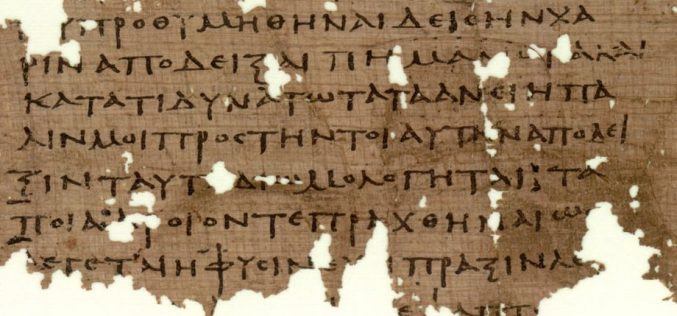 ΠΡΟΘΥΜΗΘΗΝΑΙΔΕΙϹΗΝΧΑ
ΡΙΝΑΠΟΔΕΙΞΑΙΠΗΜΑΛ ΑΚΑΙ
ΚΑΤΑΤΙΔΥΝΑΤΩΤΑΤΑΑΝΕΙΗΠΑ
ΛΙΝΜΟΙΠΡΟϹΤΗΝΤΟΙΑΥΤΗΝΑΠΟΔΕΙ
ΞΙΝΤΑΥΤ ΔΙ ΜΟΛΟΓΗΤΑΙ:ΤΑ
ΠΟΙΑ: ΡΟΙΟΝΤΕΠΡΑΧΘΗΝΑΙΩϹ
ΛΕΓΕΤΑΙΗΦΥϹΙΝ ΠΡΑΞΙΝΛΕ